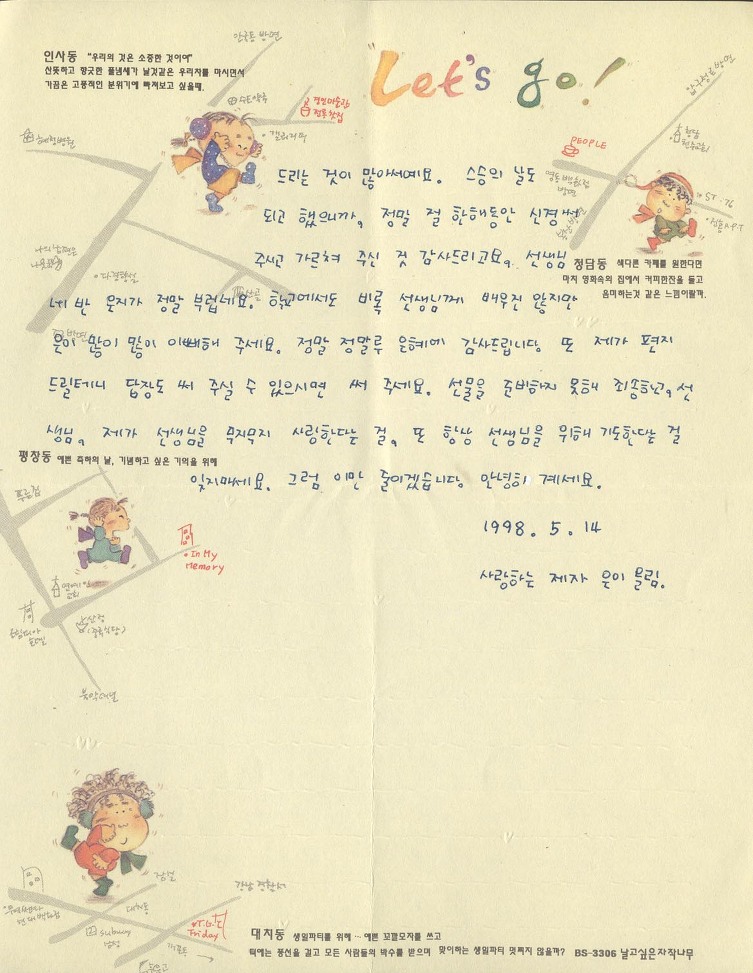 인사동 "우리의 것은 소중한 것이여"
산뜻하고 향긋한 풀냄새가 날것같은 우리차를 마시면서
가끔은 고풍적인 분위기에 빠져보고 싶을때.
Let's go!
안국동 방면
압구정동 방면
수도약국
PEOPLE
드리는 것이 많아서예요. 스승의 날도
되고 했으니까. 정말 절 한해동안 신경써
주시고 가르쳐 주신 것 감사드리고요. 선생님
청담동 색다른 카페를 원한다면
마치 영화속의 집에서 커피한잔을 들고
음미하는것 같은 느낌이랄까.
네 반 은지가 정말 부럽네요. 학교에서도 비록 선생님께 배우진 않지만
은이 많이 많이 이뻐해 주세요. 정말 정말루 은혜에 감사드립니다. 또 제가 편지
드릴테니 답장도 써 주실 수 있으시면 써 주세요. 선물을 준비하지 못해 죄송하고, 선
생님. 제가 선생님을 무지무지 사랑한다는 걸. 또 항상 선생님을 위해 기도한다는 걸
평창동 예쁜 축하의 날, 기념하고 싶은 기억을 위해
잊지마세요. 그럼 이만 줄이겠습니다. 안녕히 계세요.
1998. 5. 14
In My
Memory
사랑하는 제자 은이 올림.
산정
(중국식당)
북악터널
대치동
subway
Friday
대치동 생일파티를 위해 … 예쁜 꼬깔모자를 쓰고
턱에는 풍선을 걸고 모든 사람들의 박수를 받으며 맞이하는 생일파티 멋찌지 않을까? BS-3306 날고싶은자작나무